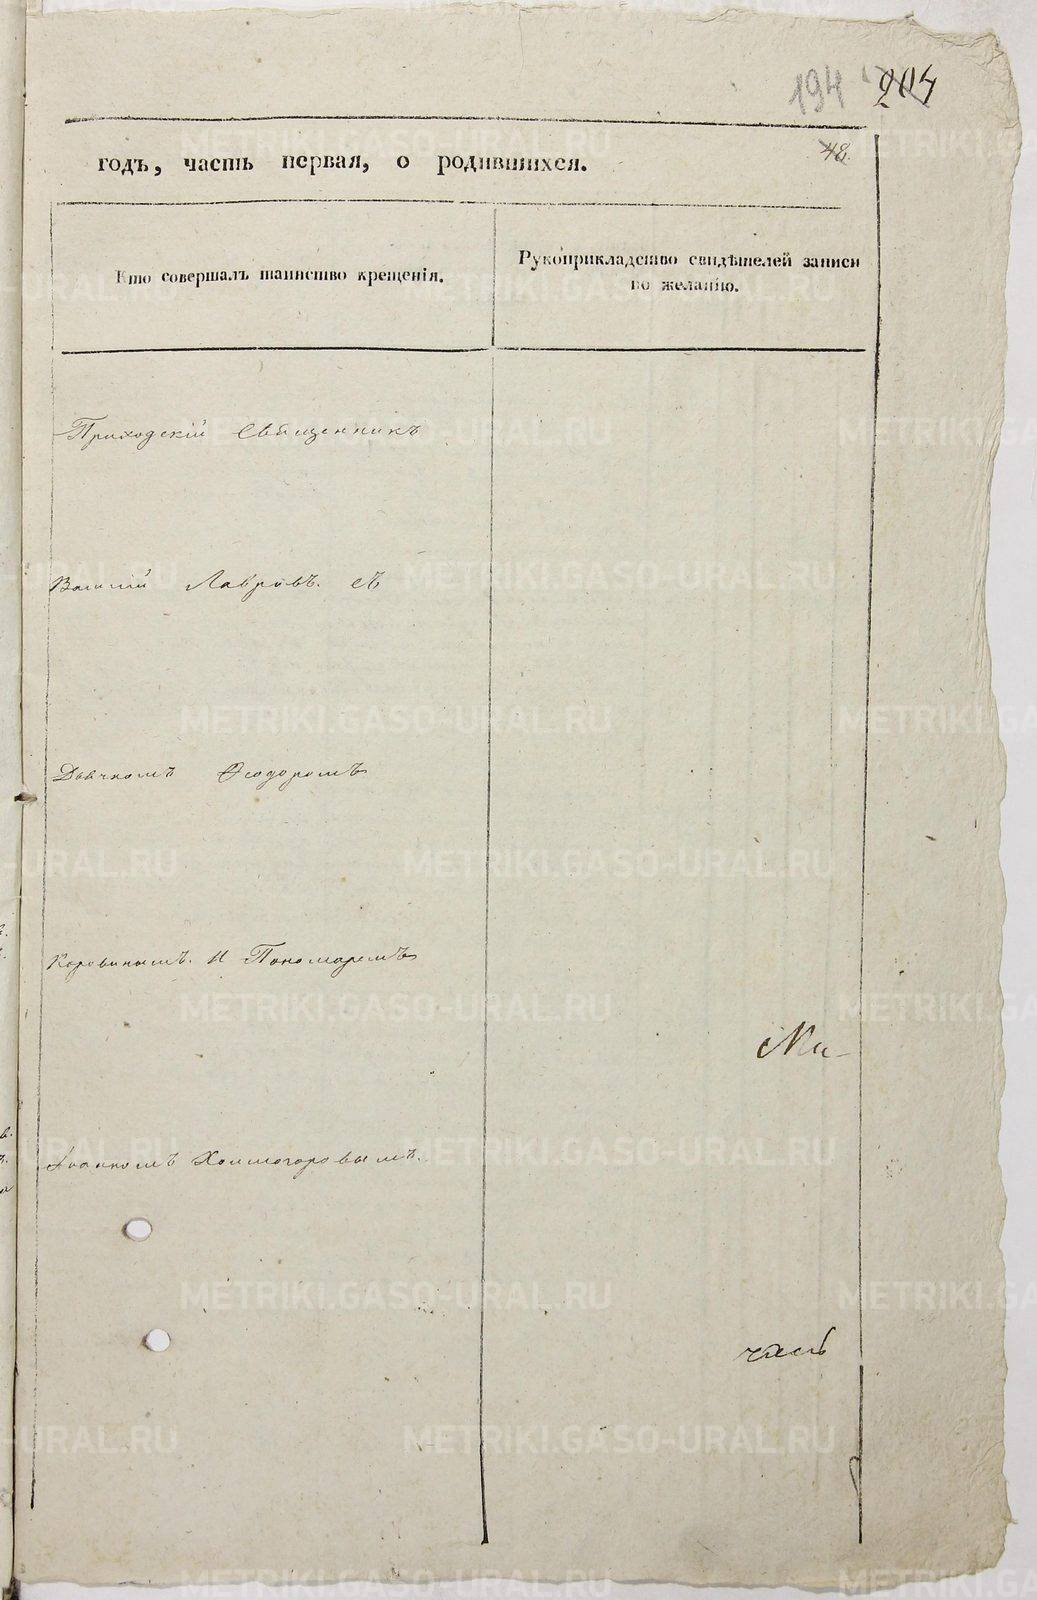 194 204
48.
годъ, часть первая, о родившихся.
Кто совершалъ таинство крещенія.
Рукоприкладство свидѣтелей записи
по желанію.
Приходскій Священникъ
Василій Лавровъ. съ
Дьячкомъ Ѳеодоромъ
Коровинымъ. и Пономаремъ
Іоанномъ Холмогоровымъ.
METRIKI.GASO-URAL.RU